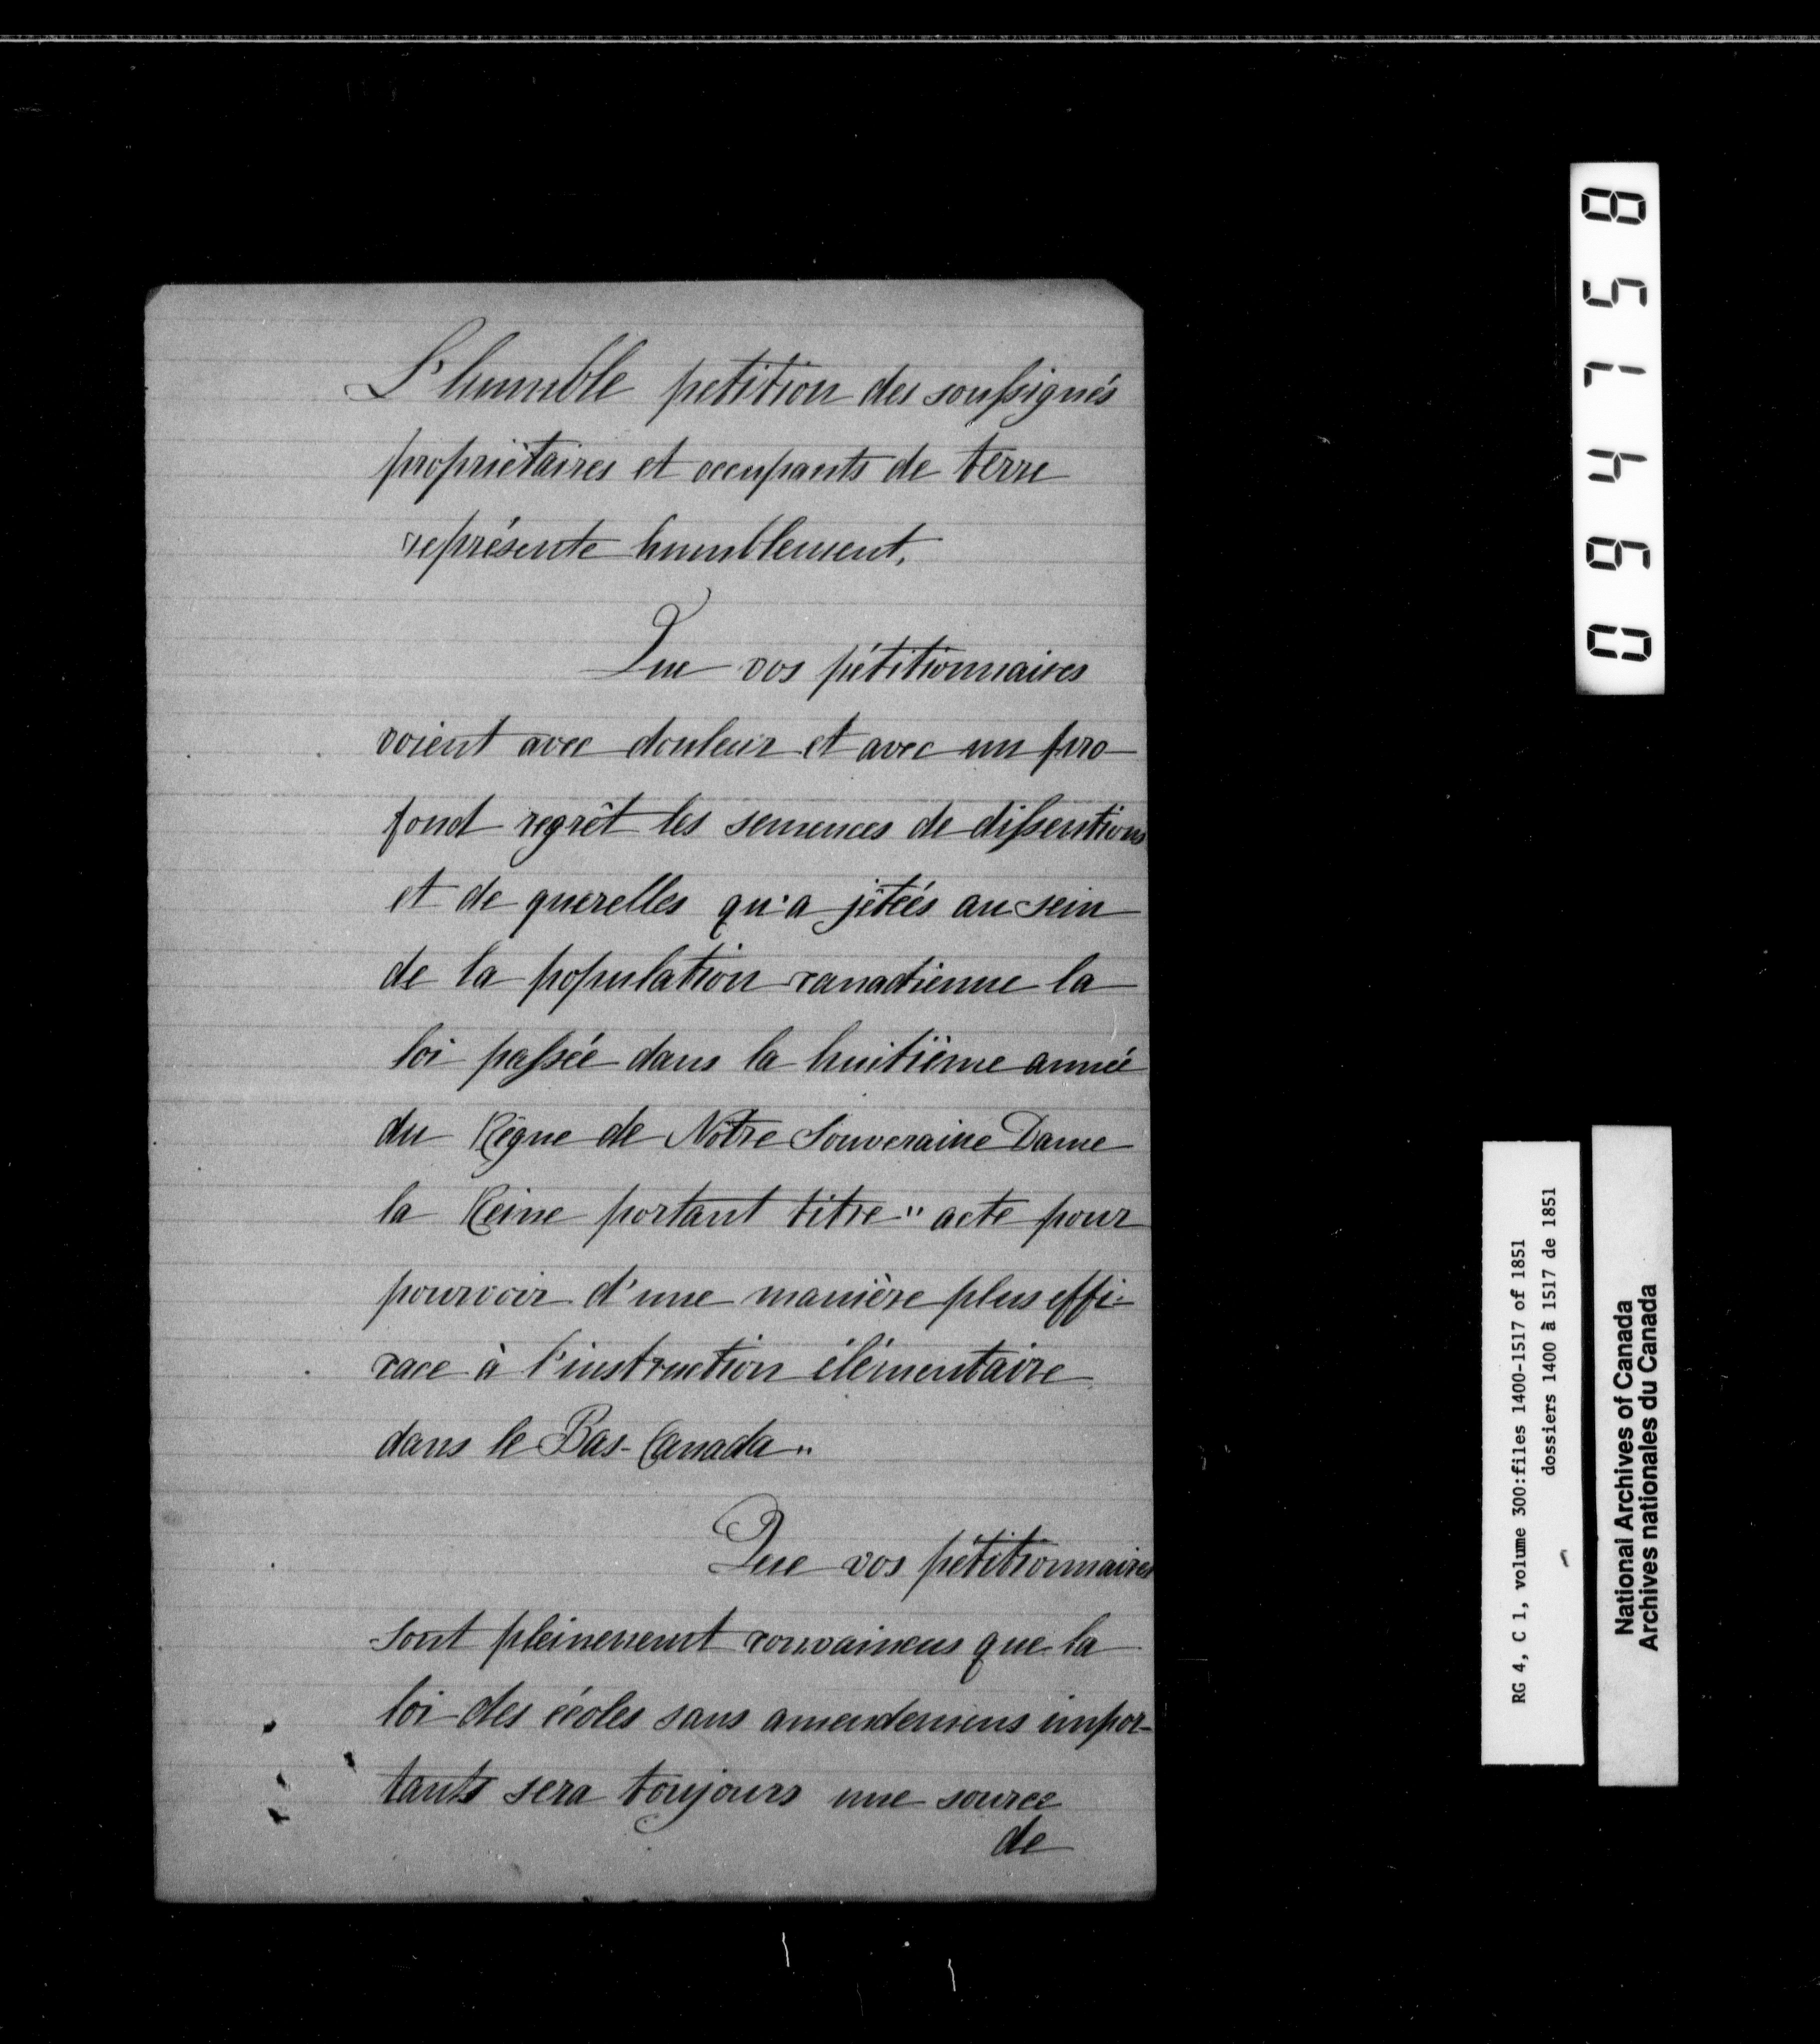 L'humble petition des soussignés
propriétaires et occupants de terre
représente humblement,
Que vos pétitionnaires
voient avec douleur et avec un pro-
fond regrêt les semences de dissentions
et de querelles qu'a jêtéés au sein
de la population canadienne la
loi passée dans la huitième année
du Règne de Nôtre Souveraine Dame
la Reine portant titre " acte pour
pourvoir d'une manière plus effi-
cace à l'instruction élémentaire
dans le Bas-Canada "
Que vos pétitionnaires
sont pleinement convaincus que la
loi des écoles sans amendemens impor-
tants sera toujours une source
de
0941518
RG 4, C 1, volume 300:files 1400-1517 of 1851
dossiers 1400 à 1517 de 1851
National Archives of Canada
Archives nationales du Canada